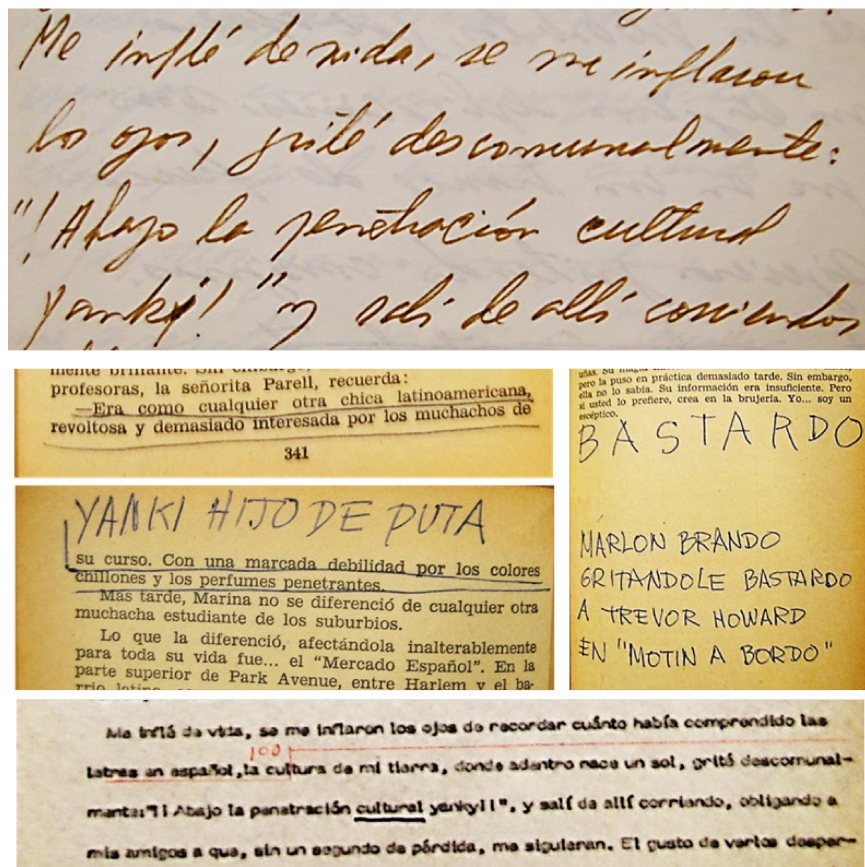 Me inflé de vida, se me inflaron
los ojos, grité descomunalmente:
"¡Abajo la penetración cultural
yanky!" y salí de allí corriendo
mente brillante. Sin embargo,
profesoras, la señorita Parell, recuerda:
—Era como cualquier otra chica latinoamericana,
revoltosa y demasiado interesada por los muchachos de
341
YANKI HIJO DE PUTA
su curso. Con una marcada debilidad por los colores
chillones y los perfumes penetrantes.
Más tarde, Marina no se diferenció de cualquier otra
muchacha estudiante de los suburbios.
Lo que la diferenció, afectándola inalterablemente
para toda su vida fue... el "Mercado Español". En la
parte superior de Park Avenue, entre Harlem y el ba-
rrio latino,
uñas. Su
pero la puso en práctica demasiado tarde. Sin embargo,
ella no lo sabía. Su información era insuficiente. Pero
si usted lo prefiere, crea en la brujería. Yo... soy un
escéptico.
BASTARDO
MARLON BRANDO
GRITANDOLE BASTARDO
A TREVOR HOWARD
EN "MOTIN A BORDO"
Me inflé de vida, se me inflaron los ojos de recordar cuánto había comprendido las
100
letras en español, la cultura de mi tierra, donde adentro nace un sol, grité descomunal-
mente:"¡¡Abajo la penetración cultural yanky!!", y salí de allí corriendo, obligando a
mis amigos a que, sin un segundo de pérdida, me siguieran. El gusto de verlos desper-